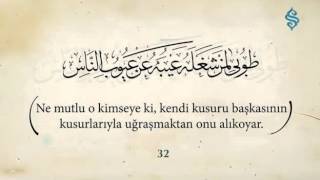 طُوبٰى لِمَنْ شَغَلَهُ عَيْبُهُ عَنْ عُيُوبِ النَّاسِ
Ne mutlu o kimseye ki, kendi kusuru başkasının
kusurlarıyla uğraşmaktan onu alıkoyar.
32